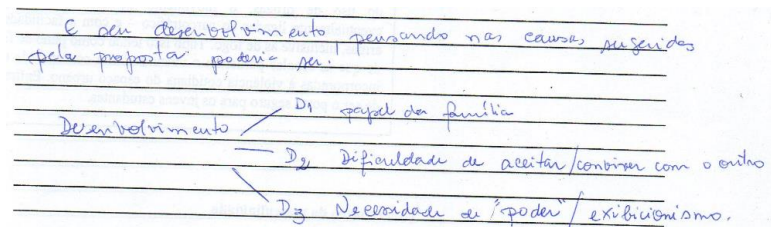 E seu desenvolvimento pensando nas causas sugeridas
pela proposta, poderia ser:
D1 papel da família
Desenvolvimento
D2 Dificuldade de aceitar/conviver com o outro
D3 Necessidade de "poder" / exibicionismo.